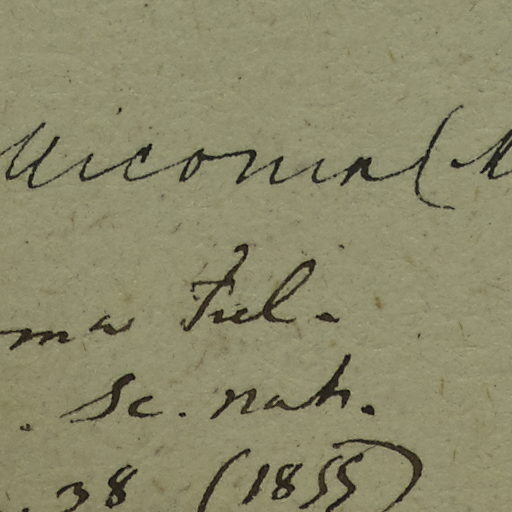 Miconia (M
ma Tul.
. Sc. nat.
. 38 (1855)